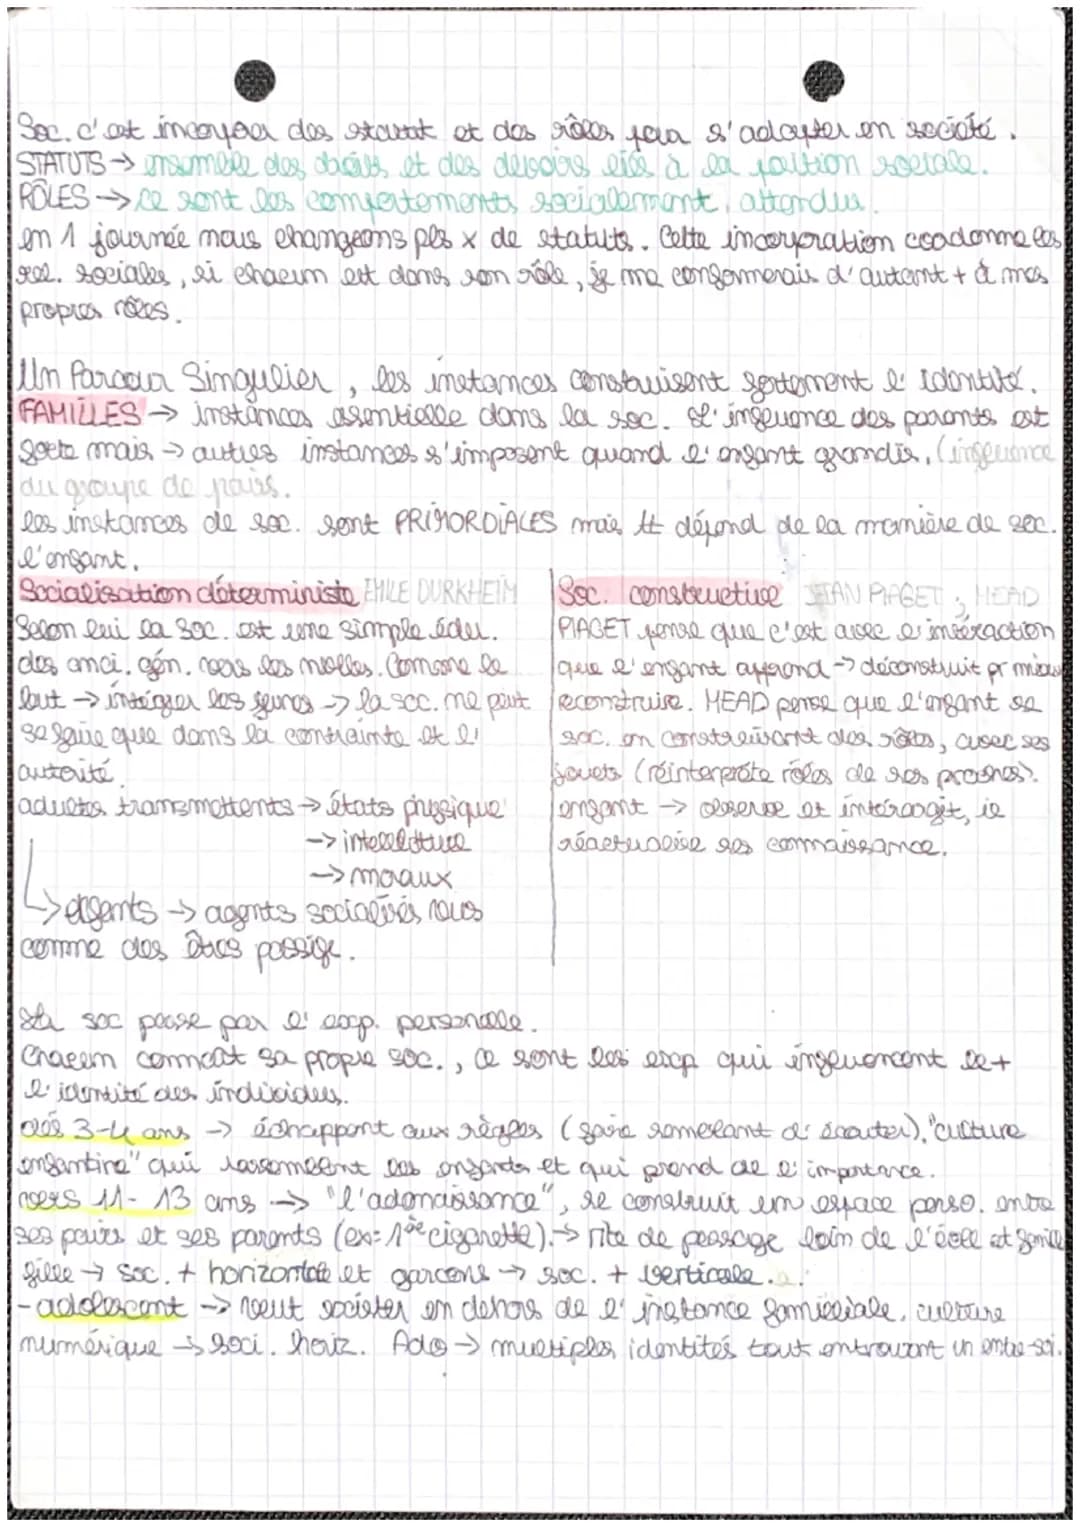 Soc. c'est incorporer des statut et des rôles pour s'adapter en société.
STATUTS → ensemble des droits et des devoirs liés à la position sociale.
RÔLES → Ce sont les comportements socialement attendus.
en 1 journée nous changeons pls x de statuts. Cette incorporation coordonne les
rel. sociales, si chacun est dans son rôle, je me conformerais d'autant + à mes
propres rôles.
Un Parcour Singulier, les instances construisent fortement l'identité.
FAMILLES → instances essentielle dans la soc. L'influence des parents est
forte mais → autres instances s'imposent quand l'enfant grandir, (influence
du groupe de pairs.
les instances de soc. sont PRIMORDIALES mais tt dépend de la manière de soc.
l'enfant.
Socialisation déterministe EMILE DURKHEIM
Selon lui la soc. est une simple édu.
des anci. gén. vers les nvlles. Comme le
but → intégrer les jeunes → la soc. ne peut
se faire que dans la contrainte et l'
autorité.
adultes transmettents → états physique
→ intellectuel
→ moraux
↳ enfants → agents socialisés vus
comme des êtres passifs.
Soc. constructive JEAN PIAGET ; HEAD
PIAGET pense que c'est avec l'intéraction
que l'enfant apprend → déconstruit pr mieux
reconstruire. HEAD pense que l'enfant se
soc. en construisant des rôles, avec ses
jouets (réinterprète rôles de ses proches).
enfant → observe et intéragit, ie
réactualise ses connaissance.
La soc passe par l'exp. personnelle.
Chacun connaît sa propre soc., ce sont les exp qui influencent le +
l'identité des individus.
dès 3-4 ans → échappent aux règles (faire semblant d'écouter), "culture
enfantine" qui rassemblent les enfants et qui prend de l'importance.
vers 11-13 ans → "l'adonaissance", se construit un espace perso. entre
ses pairs et ses parents (ex: 1ère cigarette). → rite de passage loin de l'école et famille
fille → soc. + horizontale et garçons → soc. + verticale.
- adolescent → veut exister en dehors de l'instance familiale, culture
numérique → soci. horiz. Ado → multiples identités tout entrouvant un entre-soi.